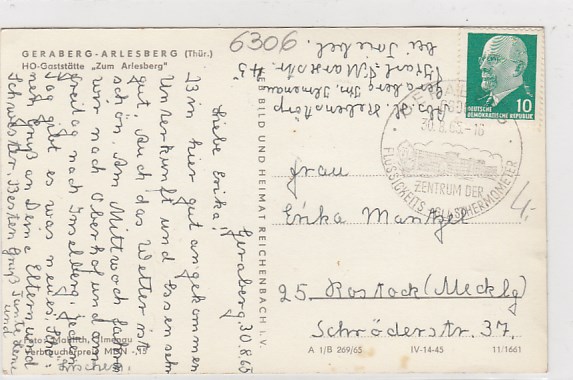 GERABERG-ARLESBERG (Thür.)
HO-Gaststätte „Zum Arlesberg"
6306
Geraberg, 30.8.65
Liebe Erika!
Bin hier gut angekommen
Unterkunft und Essen sehr
gut, auch das Wetter ist
schön. Am Mittwoch fahren
wir nach Oberhof und am
Freitag nach Inselsberg, jeden
Tag gibt es was neues. Schö-
nen Gruß an Deine Eltern und
Schwester. Besten Gruß Tante Lene
und
Abs. H. Rebenstorp
Geraberg Kr. Ilmenau
Karl-Marxstr. 43
bei
BILD UND HEIMAT REICHENBACH I. V.
Foto: Ilmenau
Verbraucherpreis MDN -,15
DEUTSCHE
DEMOKRATISCHE REPUBLIK
10
30.8.65-16
ZENTRUM DER
FLÜSSIGKEITS-GLASTHERMOMETER
4,-
Frau
Erika Mantzel
25 Rostock (Mecklg)
Schröderstr. 37
A 1/B 269/65 IV-14-45 11/1661